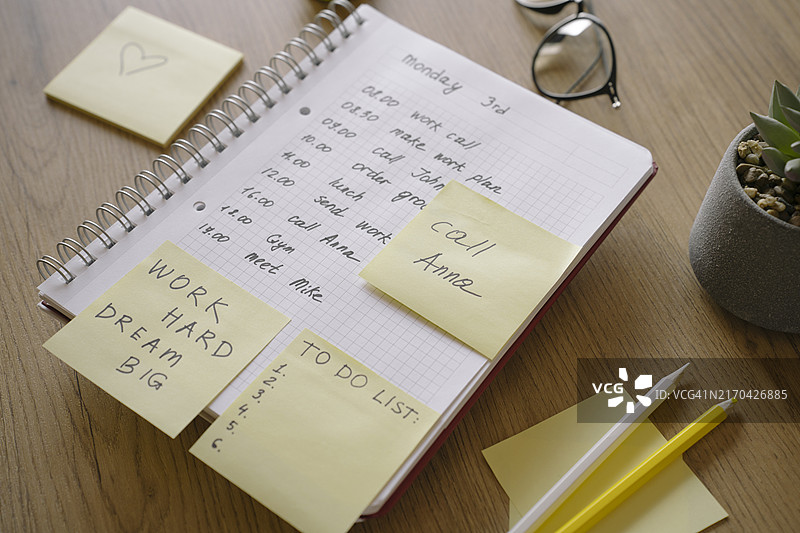 monday 3rd
08.00 work call
08.30 make work plan
09.00 call John
10.00 order gro
11.00 lunch
12.00 send work
16.00 call Anna
18.00 Gym
19.00 meet Mike
call
Anna
WORK
HARD
DREAM
BIG
TO DO LIST:
1.
2.
3.
4.
5.
6.
VCG
ID: VCG41N2170426885